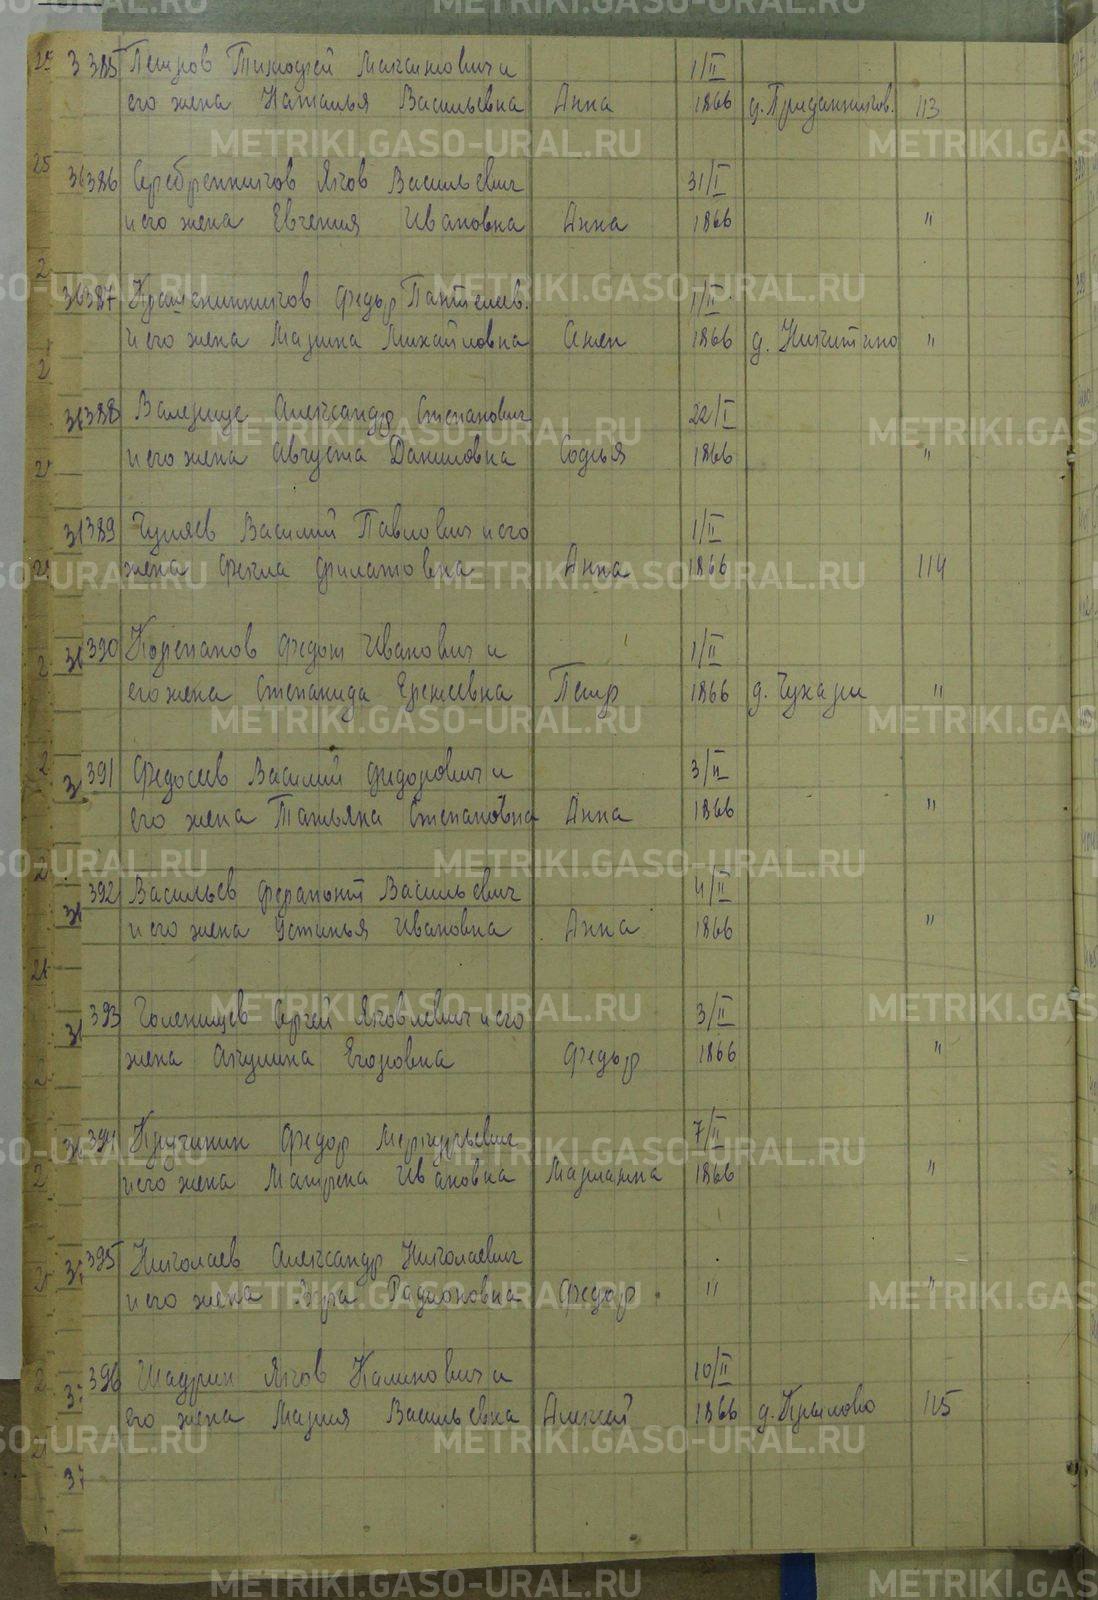 METRIKI.GASO-URAL.RU
385 Петров Тимофей Максимович и 1/II
его жена Наталья Васильевна Анна 1866 д. Приданников. 113
386 Серебренников Яков Васильевич 31/I
и его жена Евгения Ивановна Анна 1866 "
387 Крашенинников Федор Пантелеев. 1/II
и его жена Марина Михайловна Семен 1866 д. Никитино "
388 Александр Степанович 22/I
и его жена Августа Даниловна Софья 1866 "
389 Чуляев Василий Павлович и его 1/II
жена Фекла Филатовна Анна 1866 114
390 Корепанов Федот Иванович и 1/II
его жена Степанида Еремеевна Петр 1866 д. Чухари "
391 Федосеев Василий Федорович и 3/II
его жена Татьяна Степановна Анна 1866 "
392 Васильев Ферапонт Васильевич 4/II
и его жена Устинья Ивановна Анна 1866 "
393 Голенищев Сергей Яковлевич и его 3/II
жена Акулина Егоровна Федор 1866 "
394 Кручинин Федор Меркурьевич 7/II
и его жена Матрена Ивановна Марианна 1866 "
395 Николаев Александр Николаевич
и его жена Вера Радионовна Федор " "
396 Шадрин Яков Калинович и 10/II
его жена Мария Васильевна Алексей 1866 д. Крылово 115